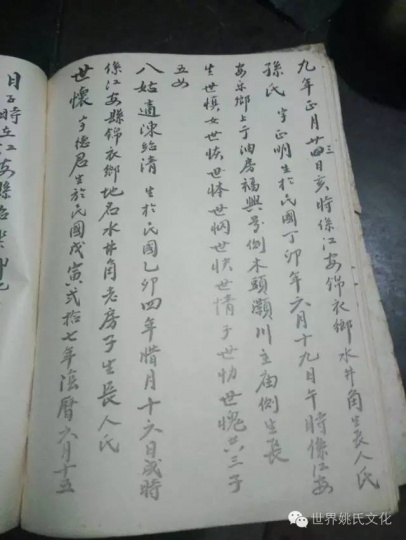 九年正月廿三四日亥時係江安錦衣鄉水井角生長人氏
孫氏 字正明生於民國丁卯年六月十九日午時係江安
安樂鄉上于油房福興號倒木頭瀕川主庙倒生長
生世慎女世恢世怵世炳世快世情子世恊世愧共三子
五女
八姑適陳紹清 生於民國乙卯四年腊月十六日戌時
係江安縣錦衣鄉地名水井角老房子生長人氏
世懷 字德君生於民國戊寅弍拾七年隂曆六月十五
日子時在江安縣
世界姚氏文化